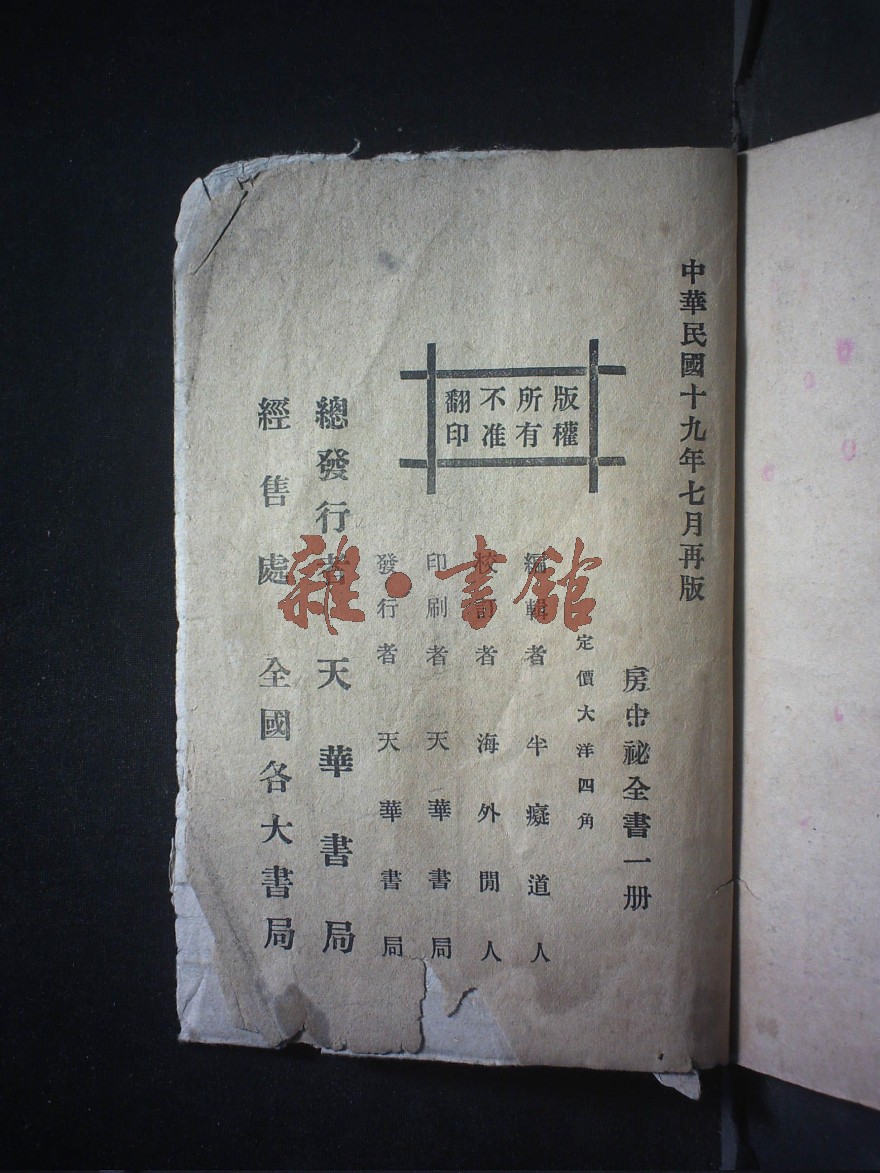 中華民國十九年七月再版
房中祕全書一册
定價大洋四角
版權
所有
不准
翻印
編輯者 半癡道人
校訂者 海外閒人
印刷者 天華書局
發行者 天華書局
總發行者 天華書局
經售處 全國各大書局
雜·書館